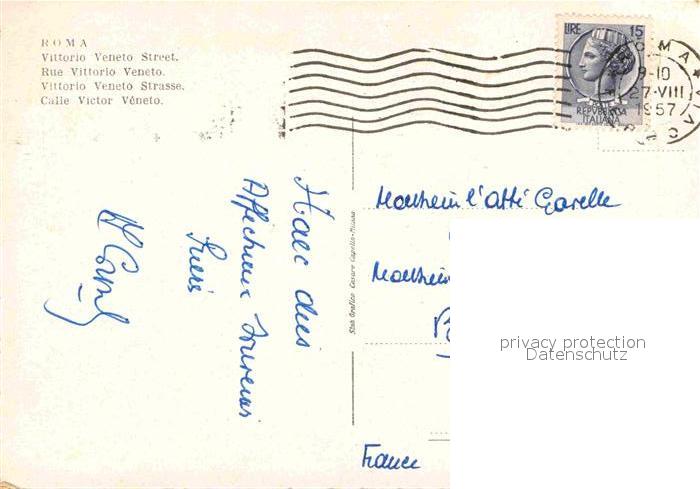 ROMA
Vittorio Veneto Street.
Rue Vittorio Veneto.
Vittorio Veneto Strasse.
Calle Victor Vêneto.
LIRE 15
REPUBBLICA
ITALIANA
ROMA
9-10
27·VIII
1957
Haec dies
Affectueux
Stab Grafico Cesare Capello-Milano
Monsieur l'abbé
Monsieur
France
privacy protection
Datenschutz